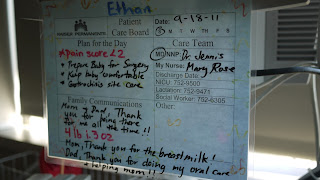 Ethan
KAISER PERMANENTE
Patient
Care Board
Date: 9-18-11
S M T W T F S
Plan for the Day
Care Team
Pain score <2
MD/NNP: Dr. Jennis
• Prepare Baby for Surgery
My Nurse: Mary Rose
• Keep baby comfortable
Discharge Date:
• Gastrochisis site care
NICU: 752-9500
Lactation: 752-9471
Social Worker: 752-6305
Family Communications
Other:
Mom & Dad, Thank
you for being there
for me all the time!!
4 lb 1.3 oz
Mom, Thank you for the breastmilk!
Dad, Thank you for doing my oral care
& helping mom!!